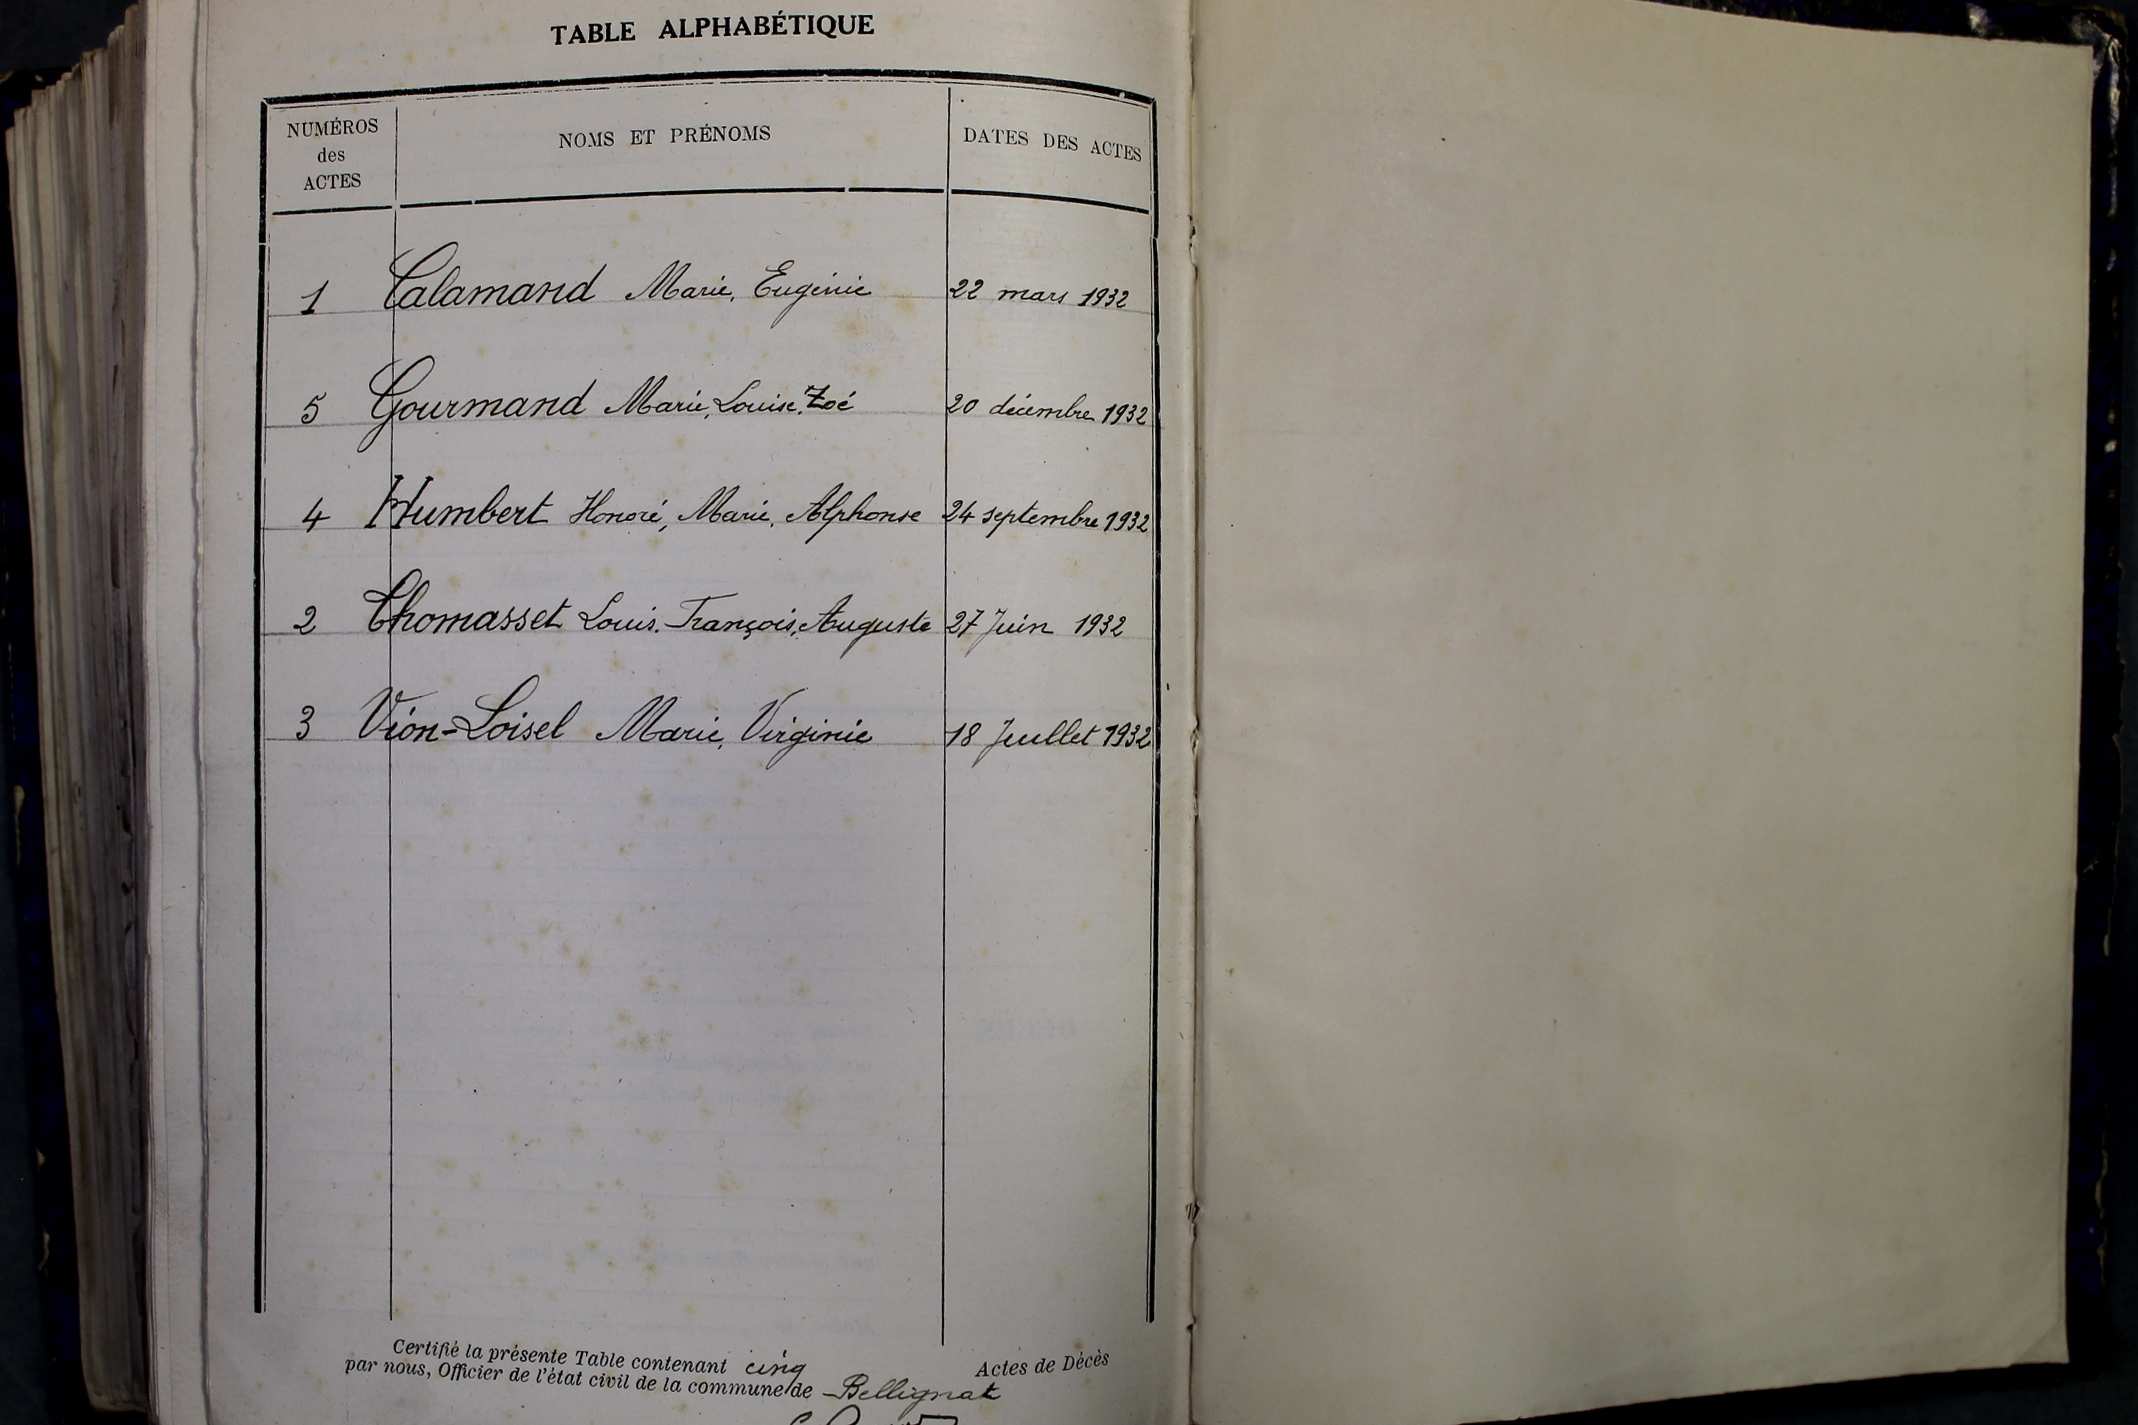 TABLE ALPHABÉTIQUE
NUMÉROS des ACTES NOMS ET PRÉNOMS DATES DES ACTES
1 Calamand Marie, Eugénie 22 mars 1932
5 Gourmand Marie, Louise, Zoé 20 décembre 1932
4 Humbert Honoré, Marie, Alphonse 24 septembre 1932
2 Chomasset Louis, François, Auguste 27 Juin 1932
3 Vion-Loisel Marie, Virginie 18 Juillet 1932
Certifié la présente Table contenant cinq Actes de Décès
par nous, Officier de l'état civil de la commune de Bellignat